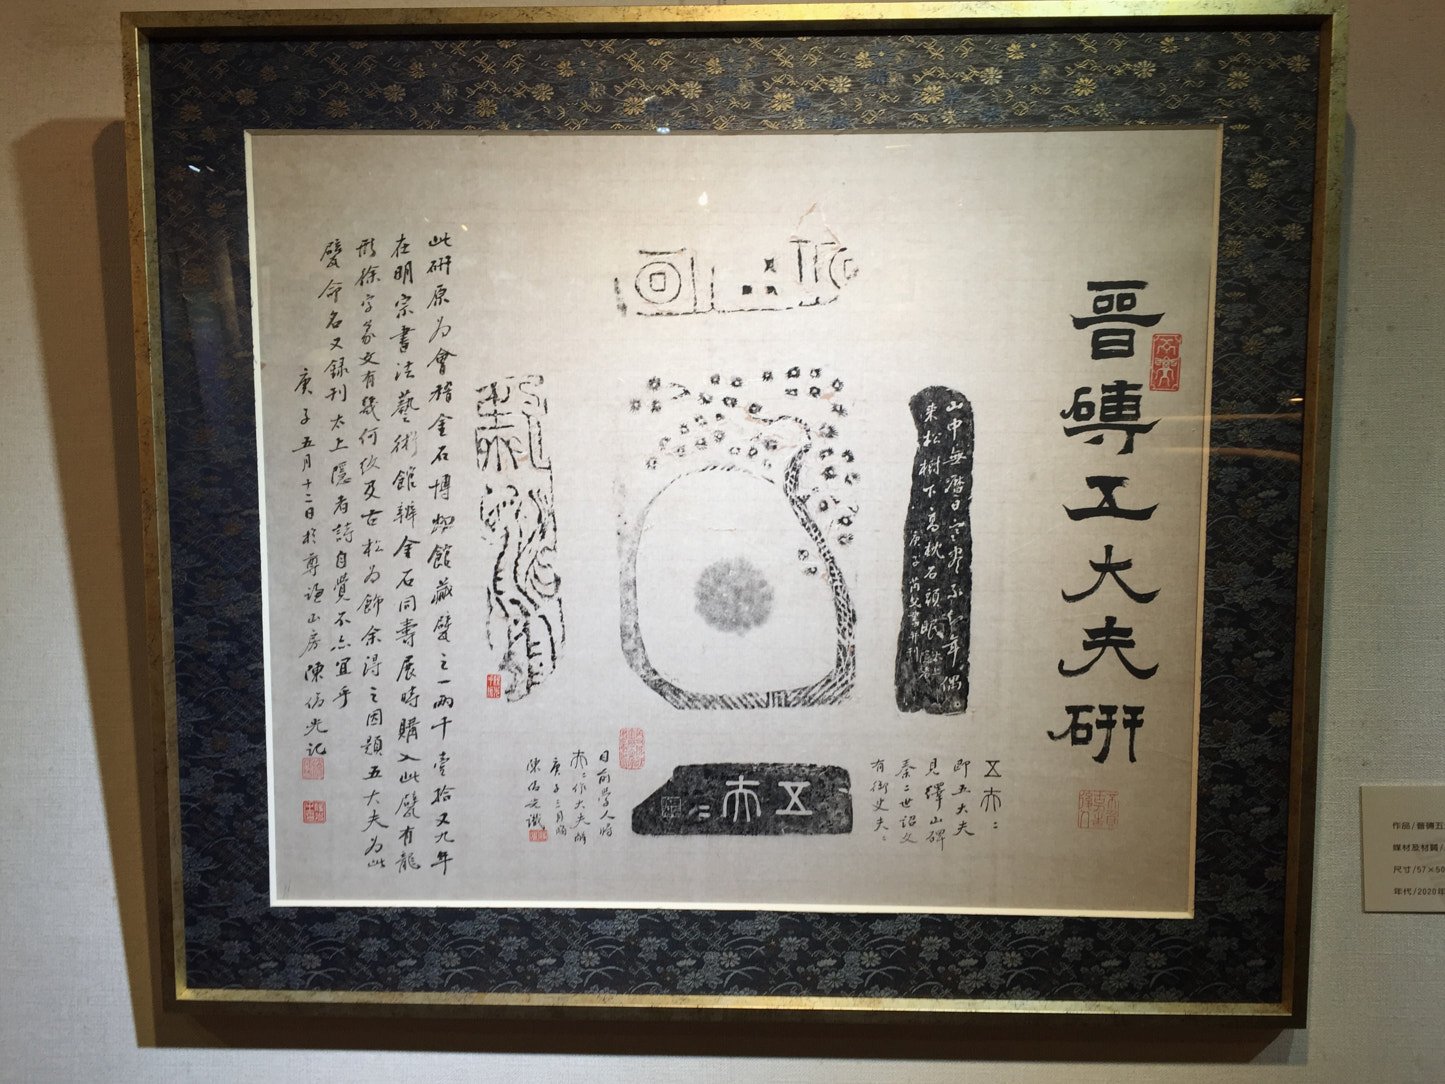 晉磚五大夫研
山中無曆日寒盡不知年偶
來松樹下高枕石頭眠
五夫二
即五大夫
見繹山碑
秦二世詔文
有御史夫二
五夫二
日前學人賜
夫二作大夫解
庚子三月
陳伯光識
此研原為會稽金石博物館藏甓之一兩千壹拾又九年
在明宗書法藝術館辦金石同壽展時購入此甓有龍
形條字篆文有幾何紋及古松為飾余得之因題五大夫為此
甓命名又錄刊太上隱者詩自覺不亦宜乎
庚子五月十二日於尊 山房陳 光記
作品/晉磚五
媒材及材質/
尺寸/57×50
年代/2020年